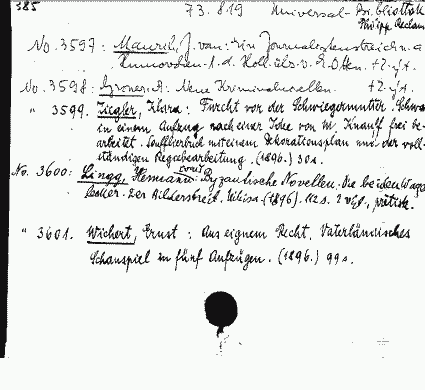 385
73.819 Universal-Bibliothek
Philipp Reclam
No. 3597: Maurik, J. van: Ein Journalistenstreich u. a.
Humoresken. A. d. Holl. übs. v. E. Otten.
No. 3598: Groner A: Neue Kriminalnovellen.
" 3599. Ziegler, Klara: Furcht vor der Schwiegermutter. Schwank
in einem Aufzug nach einer Idee von M. Knauff frei be-
arbeitet. Soufflierbuch mit einem Dekorationsplan und der voll-
ständigen Regiebearbeitung. (1896.) 30 s.
No. 3600: Lingg, Hermann: Byzantinische Novellen. Die beiden Waga
Der Bilderstreit. (1896). 112 s.
" 3601. Wichert, Ernst: Aus eignem Recht. Vaterländisches
Schauspiel in fünf Aufzügen. (1896.) 99 s.